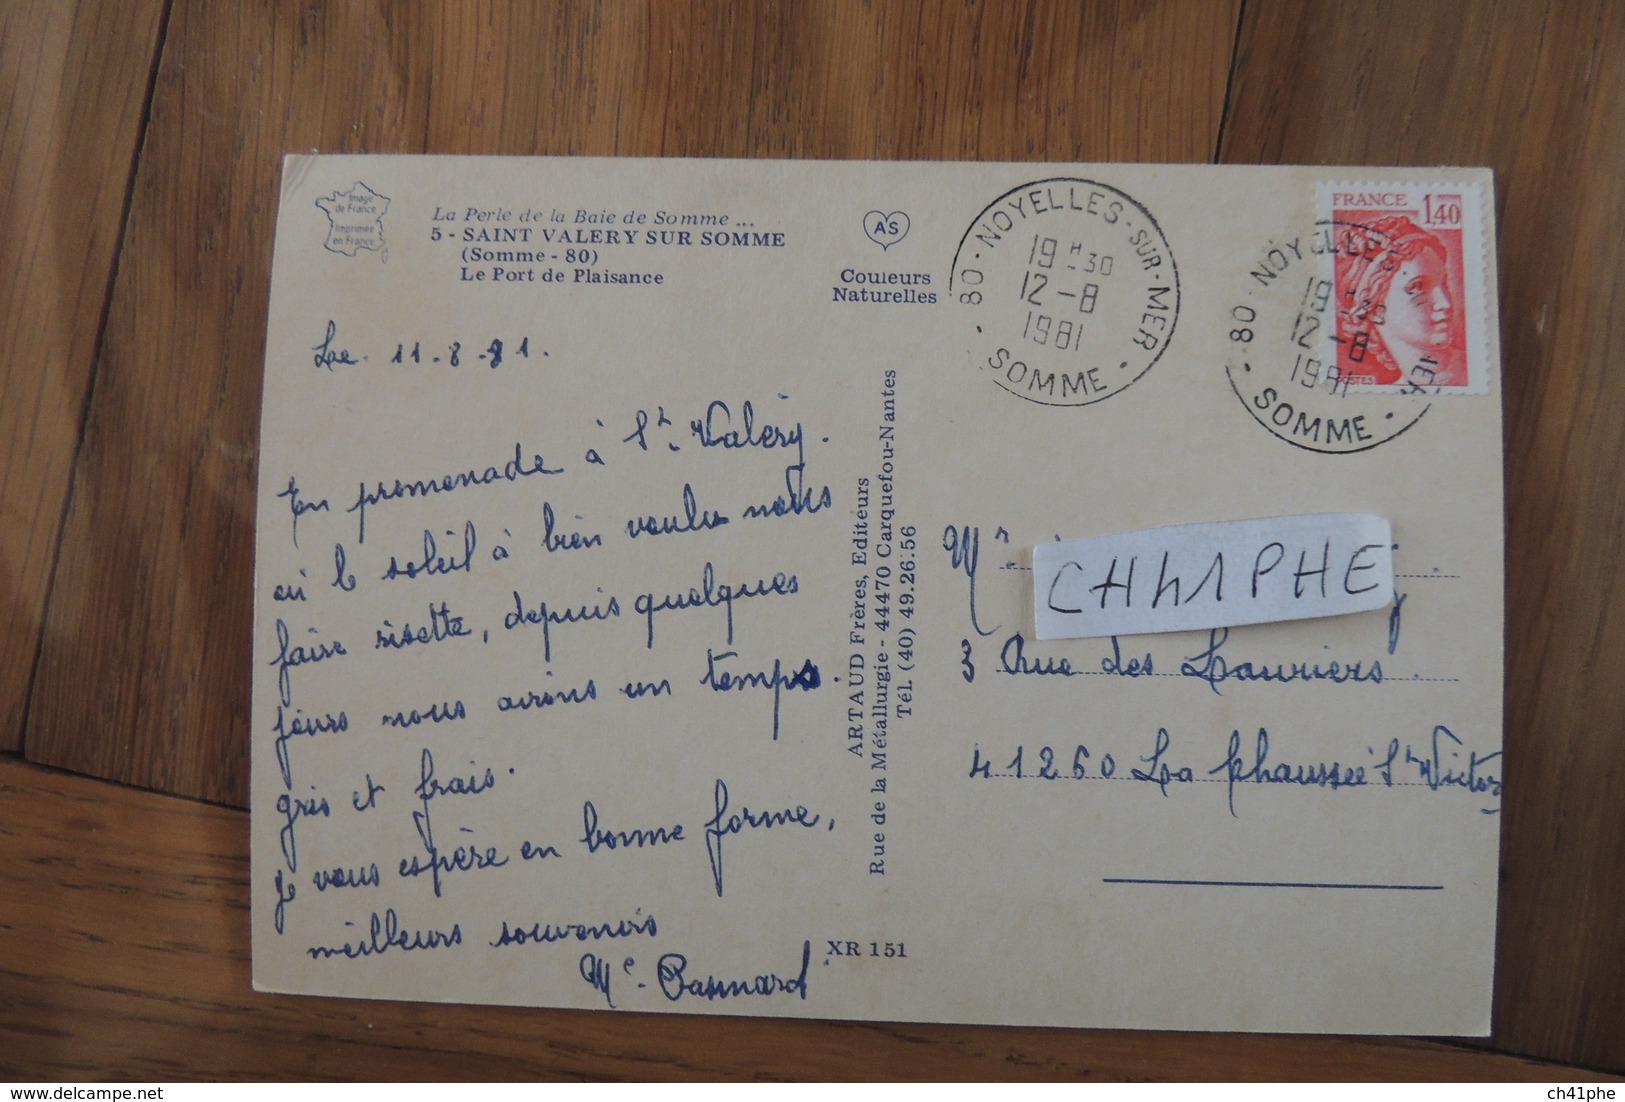 Image
de France
Imprimée
en France
La Perle de la Baie de Somme ...
5 - SAINT VALERY SUR SOMME
(Somme - 80)
Le Port de Plaisance
AS
Couleurs
Naturelles
Le 11-8-81.
En promenade à St Valéry.
où le soleil à bien voulu nous
faire risette, depuis quelques
jours nous avions un temps.
gris et frais.
je vous espère en bonne forme,
meilleurs souvenirs
Me
ARTAUD Frères, Editeurs
Rue de la Métallurgie - 44470 Carquefou-Nantes
Tél. (40) 49.26.56
XR 151
80 - NOYELLES-SUR-MER
19 H-30
12-8
1981
SOMME
80 - NOYELLES
19 H-30
12-8
1981
SOMME
FRANCE 1,40
POSTES
Mr
CH41PHE
3 Rue des Lauriers.
41260 La Chaussée St Victor
Delcampe.net
ch41phe